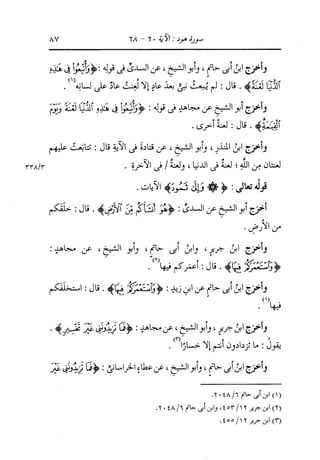 سورة هود : الآية ٦٠ - ٦٨
٨٧
وأخرج ابنُ أبى حاتمٍ ، وأبو الشيخِ ، عن السدىِّ فى قولِه : ﴿ وَأُتْبِعُوا۟ فِى هَٰذِهِ
ٱلدُّنْيَا لَعْنَةً ﴾ . قال : لم يُبعثْ نبىٌّ بعدَ عادٍ إلا لُعِنت عادٌ على لسانِه(١) .
وأخرج أبو الشيخِ عن مجاهدٍ فى قولِه : ﴿ وَأُتْبِعُوا۟ فِى هَٰذِهِ ٱلدُّنْيَا لَعْنَةً وَيَوْمَ
ٱلْقِيَٰمَةِ ﴾ . قال : لعنةٌ أخرى .
وأخرج ابنُ المنذرِ ، وأبو الشيخِ ، عن قتادةَ فى الآيةِ قال : تتابعَت عليهم
لعنتان مِن اللَّهِ ؛ لعنةٌ فى الدنيا ، ولعنةٌ / فى الآخرةِ .
٣٣٨/٣
قولُه تعالى : ﴿ ۞ وَإِلَىٰ ثَمُودَ ﴾ الآيات .
أخرج أبو الشيخِ عن السدىِّ : ﴿ هُوَ أَنشَأَكُم مِّنَ ٱلْأَرْضِ ﴾ . قال : خلَقكم
من الأرضِ .
وأخرج ابنُ جريرٍ ، وابنُ أبى حاتمٍ ، وأبو الشيخِ ، عن مجاهدٍ :
﴿ وَٱسْتَعْمَرَكُمْ فِيهَا ﴾ . قال : أعمَركم فيها(٢) .
وأخرج ابنُ أبى حاتمٍ عن ابنِ زيدٍ : ﴿ وَٱسْتَعْمَرَكُمْ فِيهَا ﴾ . قال : استخلَفكم
فيها(١) .
وأخرج ابنُ جريرٍ ، وأبو الشيخِ ، عن مجاهدٍ : ﴿ فَمَا تَزِيدُونَنِى غَيْرَ تَخْسِيرٍ ﴾ .
يقولُ : ما تزدادون أنتم إلا خسارًا(٣) .
وأخرج ابنُ أبى حاتمٍ ، وأبو الشيخِ ، عن عطاءٍ الخراسانىِّ : ﴿ فَمَا تَزِيدُونَنِى غَيْرَ
(١) ابن أبى حاتم ٢٠٤٨/٦ .
(٢) ابن جرير ٤٥٣/١٢ ، وابن أبى حاتم ٢٠٤٨/٦ .
(٣) ابن جرير ٤٥٥/١٢ .